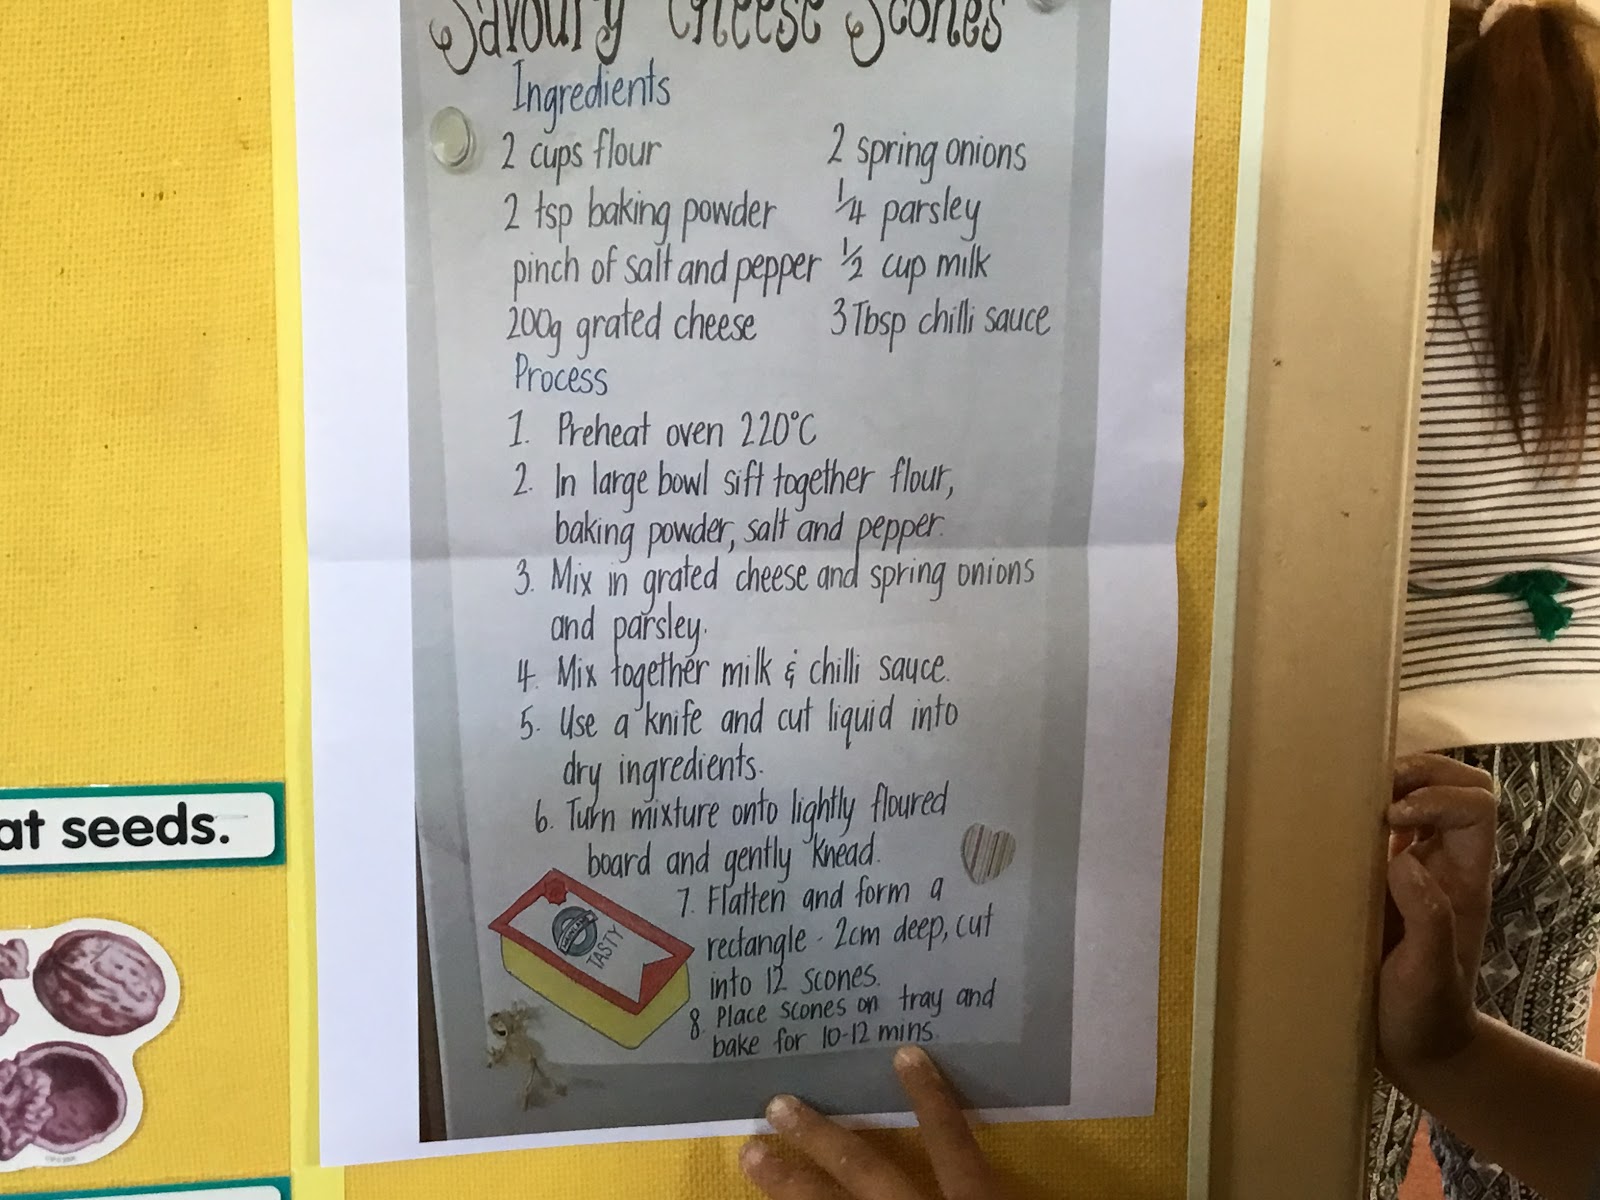 Savoury Cheese Scones
Ingredients
2 cups flour
2 tsp baking powder
pinch of salt and pepper
200g grated cheese
2 spring onions
1/4 parsley
1/2 cup milk
3 Tbsp chilli sauce
Process
1. Preheat oven 220°C
2. In large bowl sift together flour,
baking powder, salt and pepper.
3. Mix in grated cheese and spring onions
and parsley.
4. Mix together milk & chilli sauce.
5. Use a knife and cut liquid into
dry ingredients.
6. Turn mixture onto lightly floured
board and gently knead.
7. Flatten and form a
rectangle - 2cm deep, cut
into 12 scones.
8. Place scones on tray and
bake for 10-12 mins.
TASTY
at seeds.